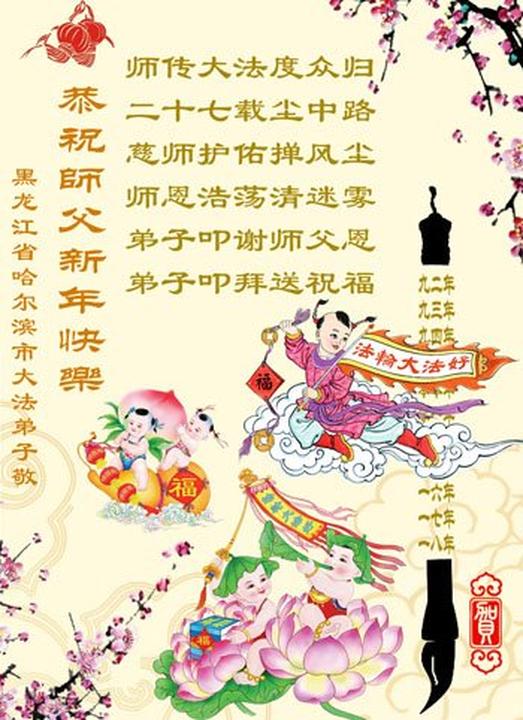 恭祝師父新年快樂
黑龙江省哈尔滨市大法弟子敬
师传大法度众归
二十七载尘中路
慈师护佑掸风尘
师恩浩荡清迷雾
弟子叩谢师父恩
弟子叩拜送祝福
九二年
九三年
九四年
法輪大法好
福
福
一六年
一七年
一八年
福
賀